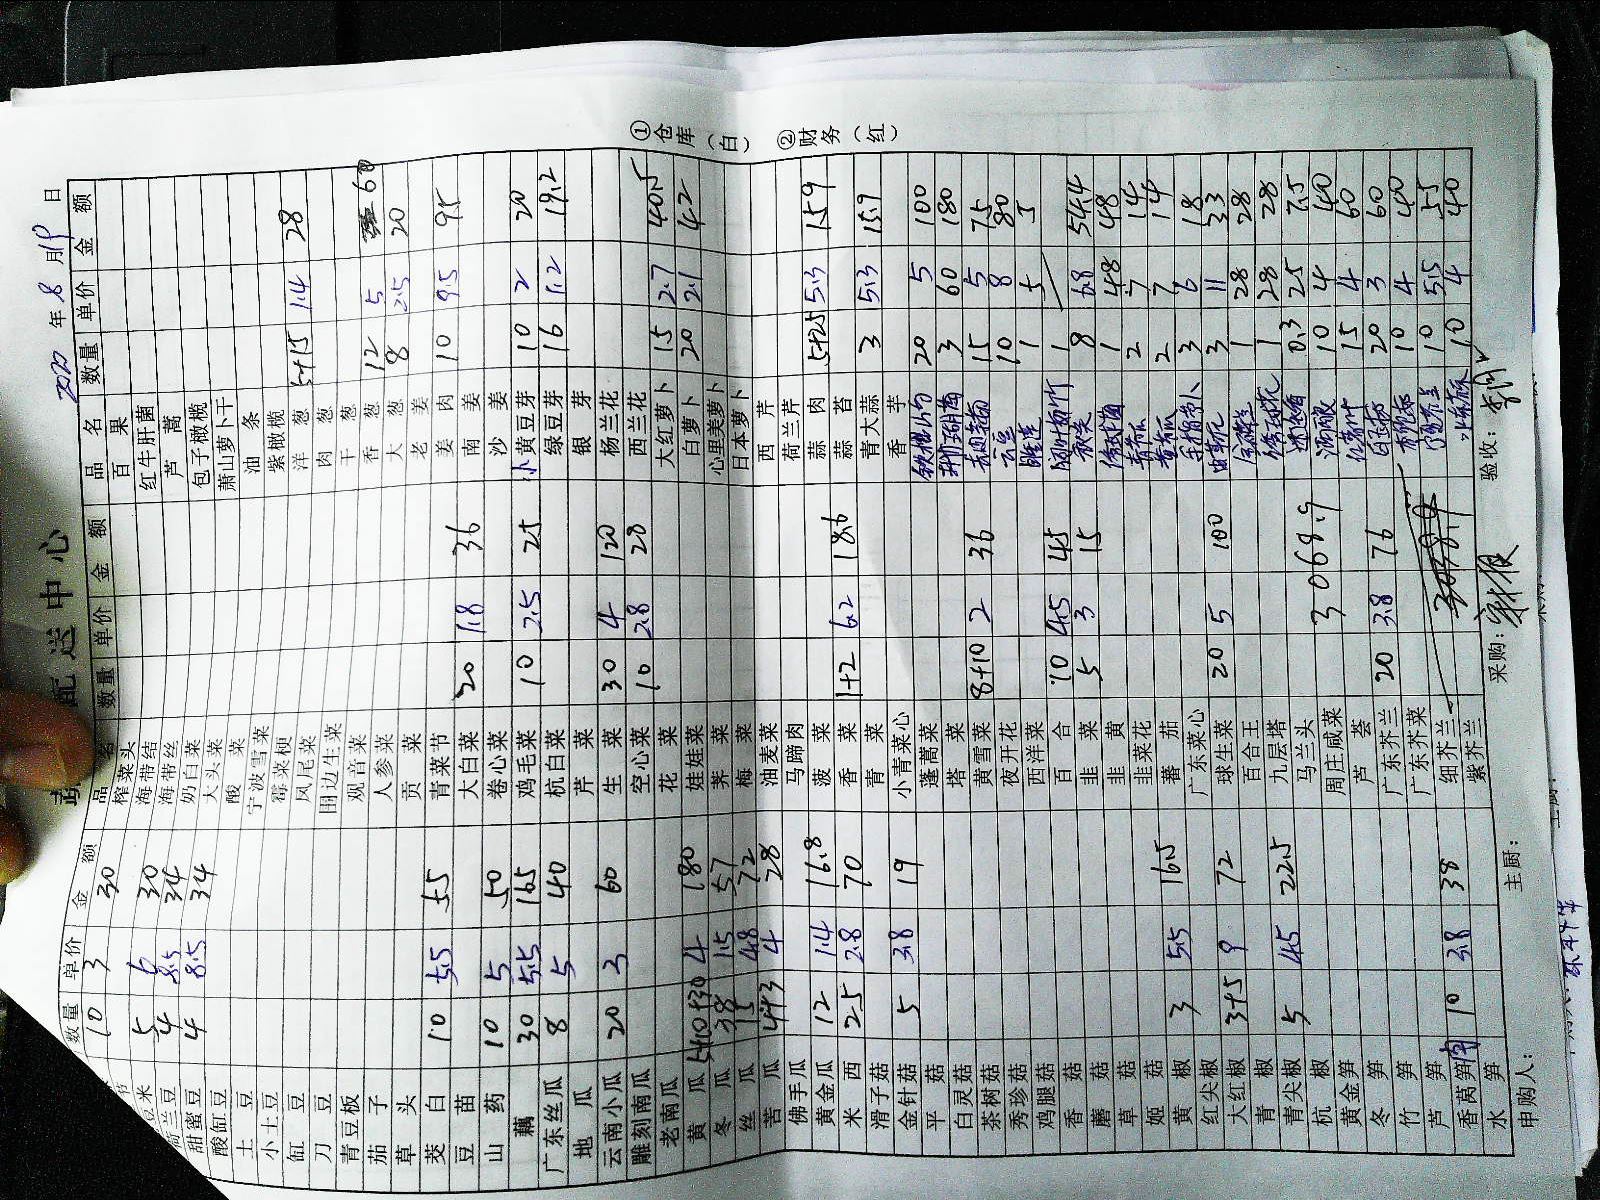 配送中心
2020年8月19日
品名 数量 单价 金额
10 3 30
豆米 5 6 30
荷兰豆 4 8.5 34
甜蜜豆 4 8.5 34
酸缸豆
土豆
小土豆
缸豆
刀豆
青豆板
茄子
草头
茭白 10 5.5 55
豆苗
山药 10 5 50
藕 30 5.5 165
广东丝瓜 8 5 40
地瓜
云南小瓜 20 3 60
雕刻南瓜
老南瓜
黄瓜 5+10+30 4 180
冬瓜 38 1.5 57
丝瓜 15 4.8 72
苦瓜 4+3 4 28
佛手瓜
黄金瓜 12 1.4 16.8
米西 25 2.8 70
滑子菇
金针菇 5 3.8 19
平菇
白灵菇
茶树菇
秀珍菇
鸡腿菇
香菇
蘑菇
草菇
姬菇
黄椒 3 5.5 16.5
红尖椒
大红椒 3+5 9 72
青椒
青尖椒 5 4.5 22.5
杭椒
黄金笋
冬笋
竹笋
芦笋
香莴笋 10 3.8 38
水笋
品名 数量 单价 金额
榨菜头
海带结
海带丝
奶白菜
大头菜
酸菜
宁波雪菜
霉菜梗
凤尾菜
围边生菜
观音菜
人参菜
贡菜
青菜节
大白菜 20 1.8 36
卷心菜
鸡毛菜 10 2.5 25
杭白菜
芹菜
生菜 30 4 120
空心菜 10 2.8 28
花菜
娃娃菜
荠菜
梅菜
油麦菜
马蹄肉
菠菜
香菜 1+2 6.2 18.6
青菜
小青菜心
蓬蒿菜
塔菜
黄雪菜 8+10 2 36
夜开花
西洋菜
百合 10 4.5 45
韭菜 5 3 15
韭黄
韭菜花
蕃茄
广东菜心
球生菜 20 5 100
百合王
九层塔
马兰头
3068.9
周庄咸菜
芦荟
广东芥兰 20 3.8 76
广东芥菜
细芥兰
紫芥兰
品名 数量 单价 金额
百果
红牛肝菌
芦蒿
包子橄榄
萧山萝卜干
油条
紫橄榄
洋葱 5+15 1.4 28
肉葱
干葱
香葱 12 5 60
大葱 8 2.5 20
老姜
姜肉 10 9.5 95
南姜
沙姜
小黄豆芽 10 2 20
绿豆芽 16 1.2 19.2
银芽
杨兰花
西兰花
大红萝卜 15 2.7 40.5
白萝卜 20 2.1 42
心里美萝卜
日本萝卜
西芹
荷兰芹
蒜肉 5+25 5.3 159
蒜苔
青大蒜 3 5.3 15.9
香芋
20 5 100
3 60 180
15 5 75
10 8 80
1 5 5
8 6.8 54.4
1 48 48
青黄瓜 2 7 14
黄黄瓜 2 7 14
手指萝卜 3 6 18
3 11 33
1 28 28
1 28 28
0.3 25 7.5
10 4 40
15 4 60
20 3 60
10 4 40
10 5.5 55
10 4 40
①仓库(白) ②财务(红)
申购人: 主厨: 采购: 验收: